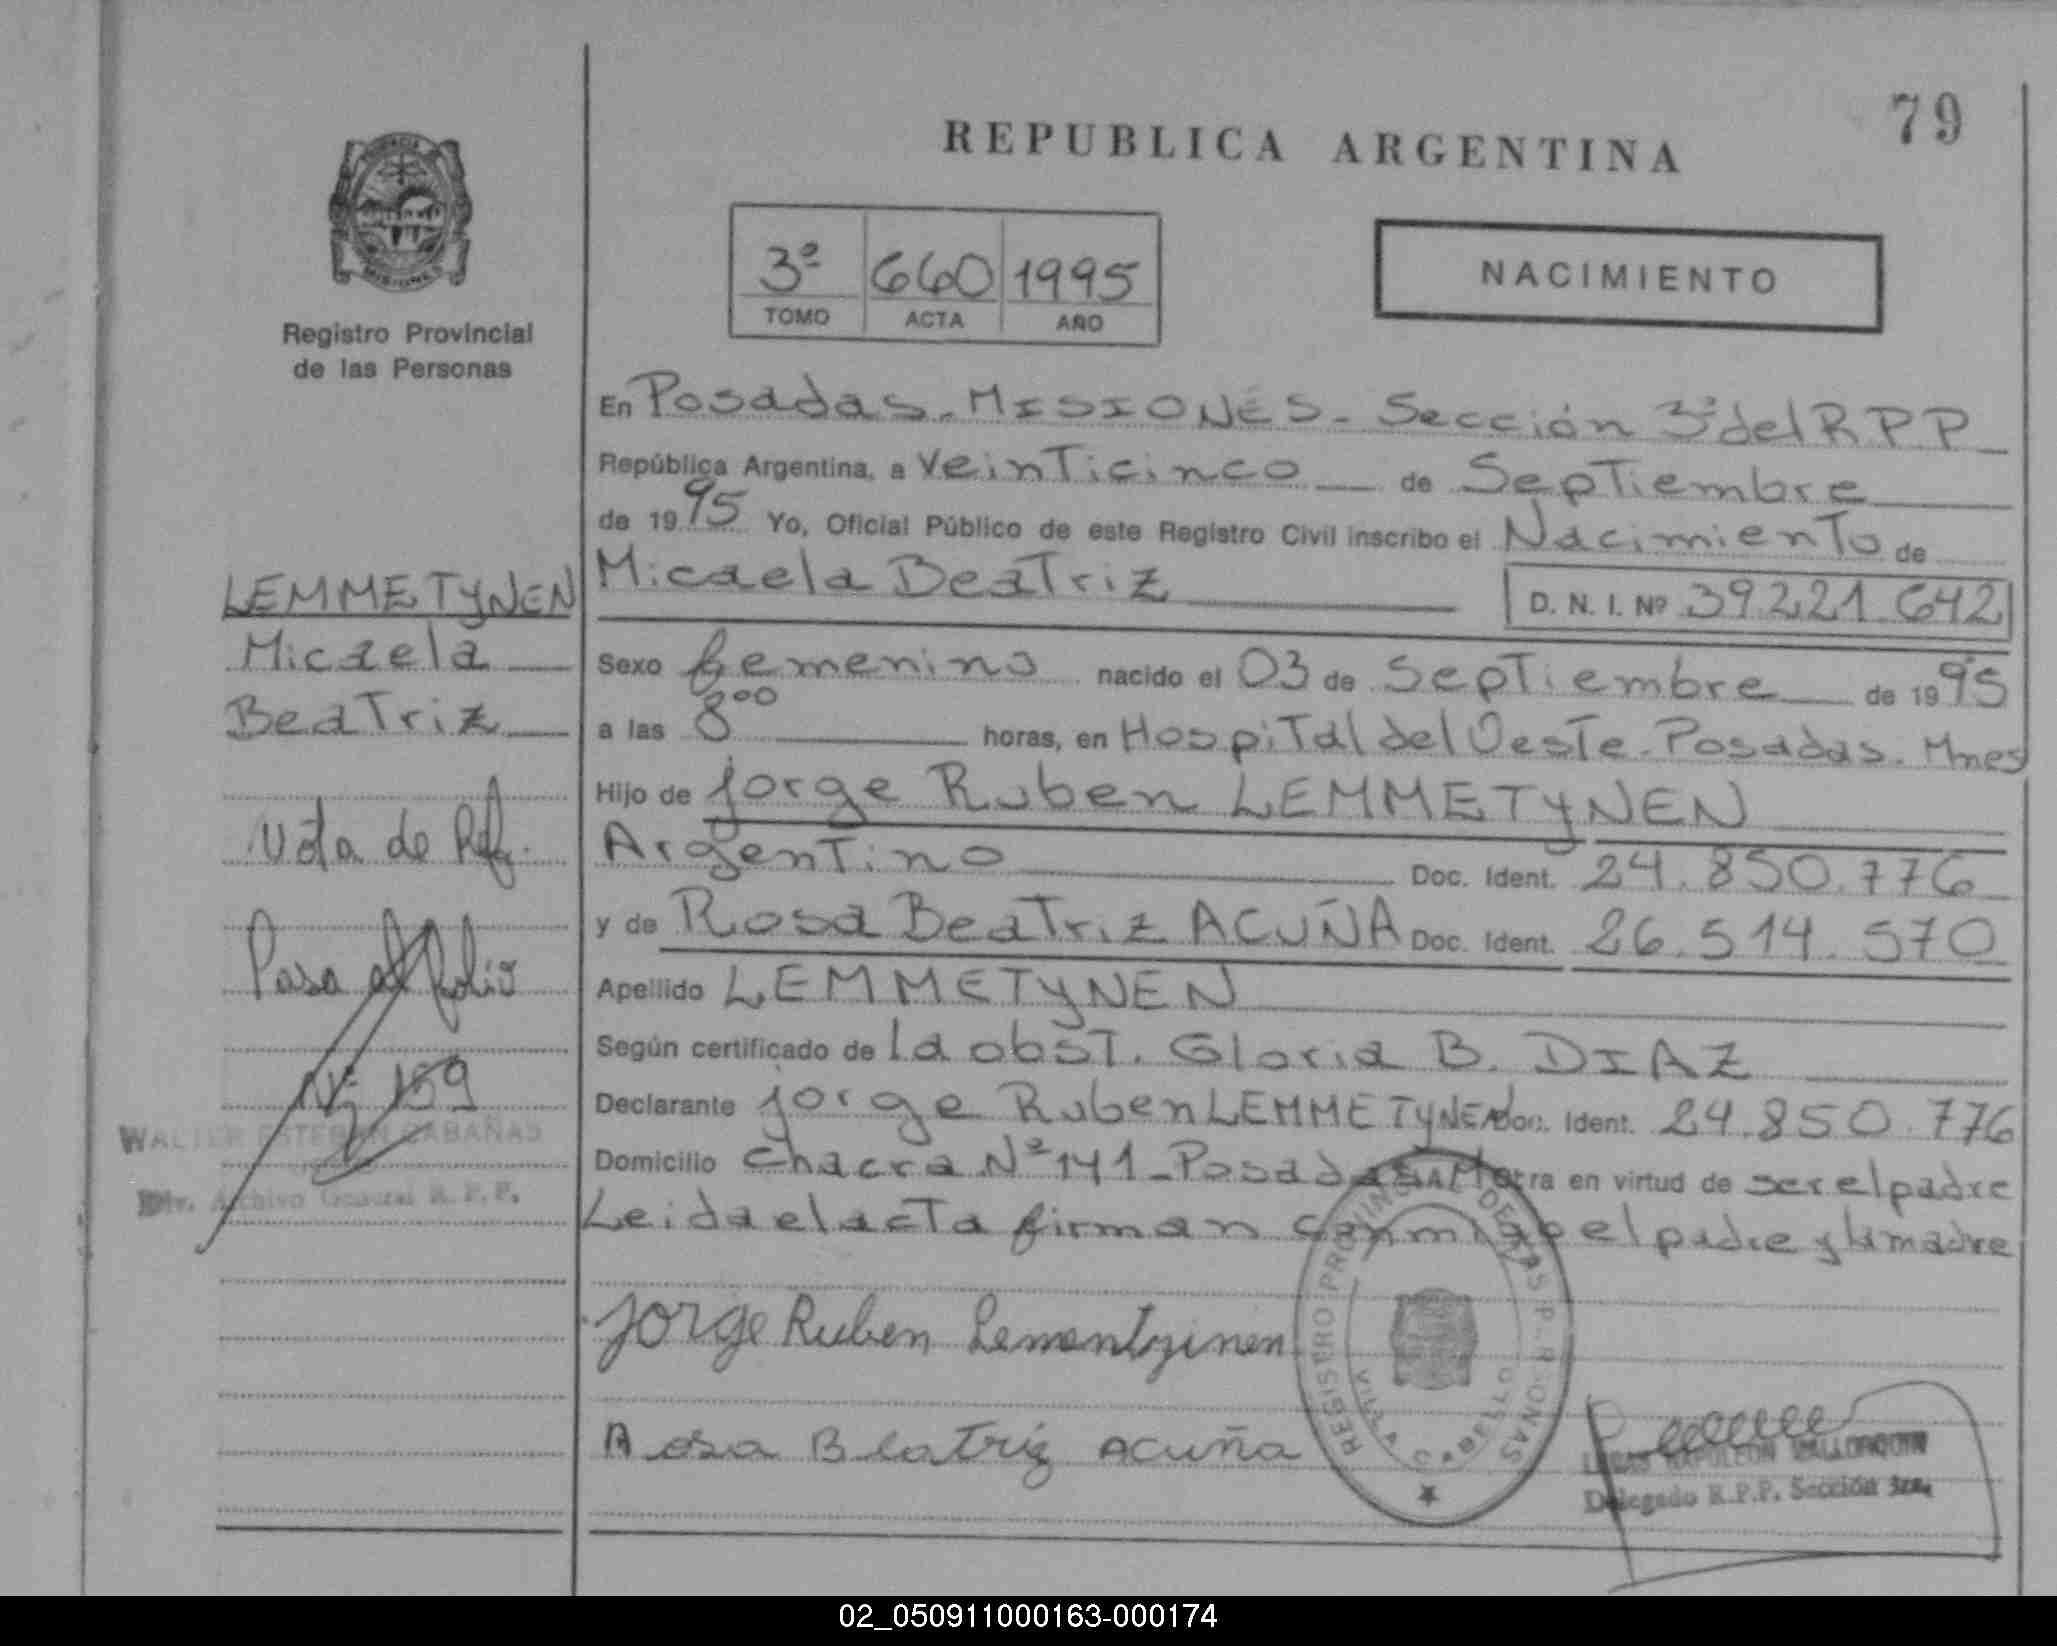 79
REPUBLICA ARGENTINA
3ª 660 1995
TOMO ACTA AÑO
NACIMIENTO
Registro Provincial
de las Personas
En Posadas - MISIONES - Sección 3ª del RPP
República Argentina, a veinticinco de Septiembre
de 1995 Yo, Oficial Público de este Registro Civil inscribo el Nacimiento de
Micaela Beatriz D. N. I. Nº 39.221.642
Sexo femenino nacido el 03 de Septiembre de 1995
a las 8 00 horas, en Hospital del Oeste - Posadas - Mnes
Hijo de Jorge Ruben LEMMETYNEN
Argentino Doc. Ident. 24.850.776
y de Rosa Beatriz ACUÑA Doc. Ident. 26.514.570
Apellido LEMMETYNEN
Según certificado de la obst. Gloria B. DIAZ
Declarante Jorge Ruben LEMMETYNEN Doc. Ident. 24.850.776
Domicilio Chacra Nº 141 - Posadas en virtud de ser el padre
Leida el acta firman conmigo el padre y la madre
Jorge Ruben
Rosa Beatriz Acuña
LEMMETYNEN
Micaela
Beatriz
de Ref.
Pasa al folio
Nº 159
WALTER ESTEBAN CABAÑAS
Div. Archivo General R. P. P.
REGISTRO PROVINCIAL DE LAS PERSONAS
VILLA CABELLO
Delegado R.P.P. Sección 3ra.
02_050911000163-000174